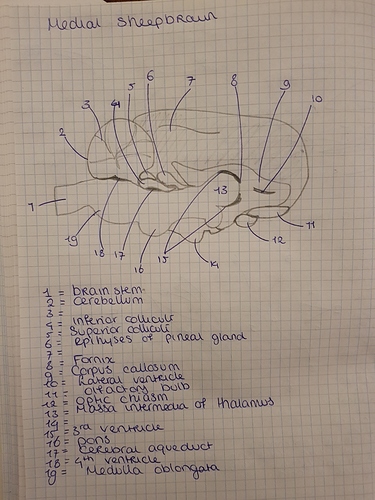 Medial sheepbrain
5 6 7 8 9
3 4 10
2
13
1
19 18 17 16 15 14 12 11
1 = brain stem
2 = cerebellum
3 =
4 = inferior colliculi
5 = superior colliculi
6 = epihyses of pineal gland
7 =
8 = Fornix
9 = Corpus callosum
10 = Lateral ventricle
11 = olfactory bulb
12 = optic chiasm
13 = Massa intermedia of thalamus
14 =
15 = 3rd ventricle
16 = pons
17 = cerebral aqueduct
18 = 4th ventricle
19 = Medulla oblongata